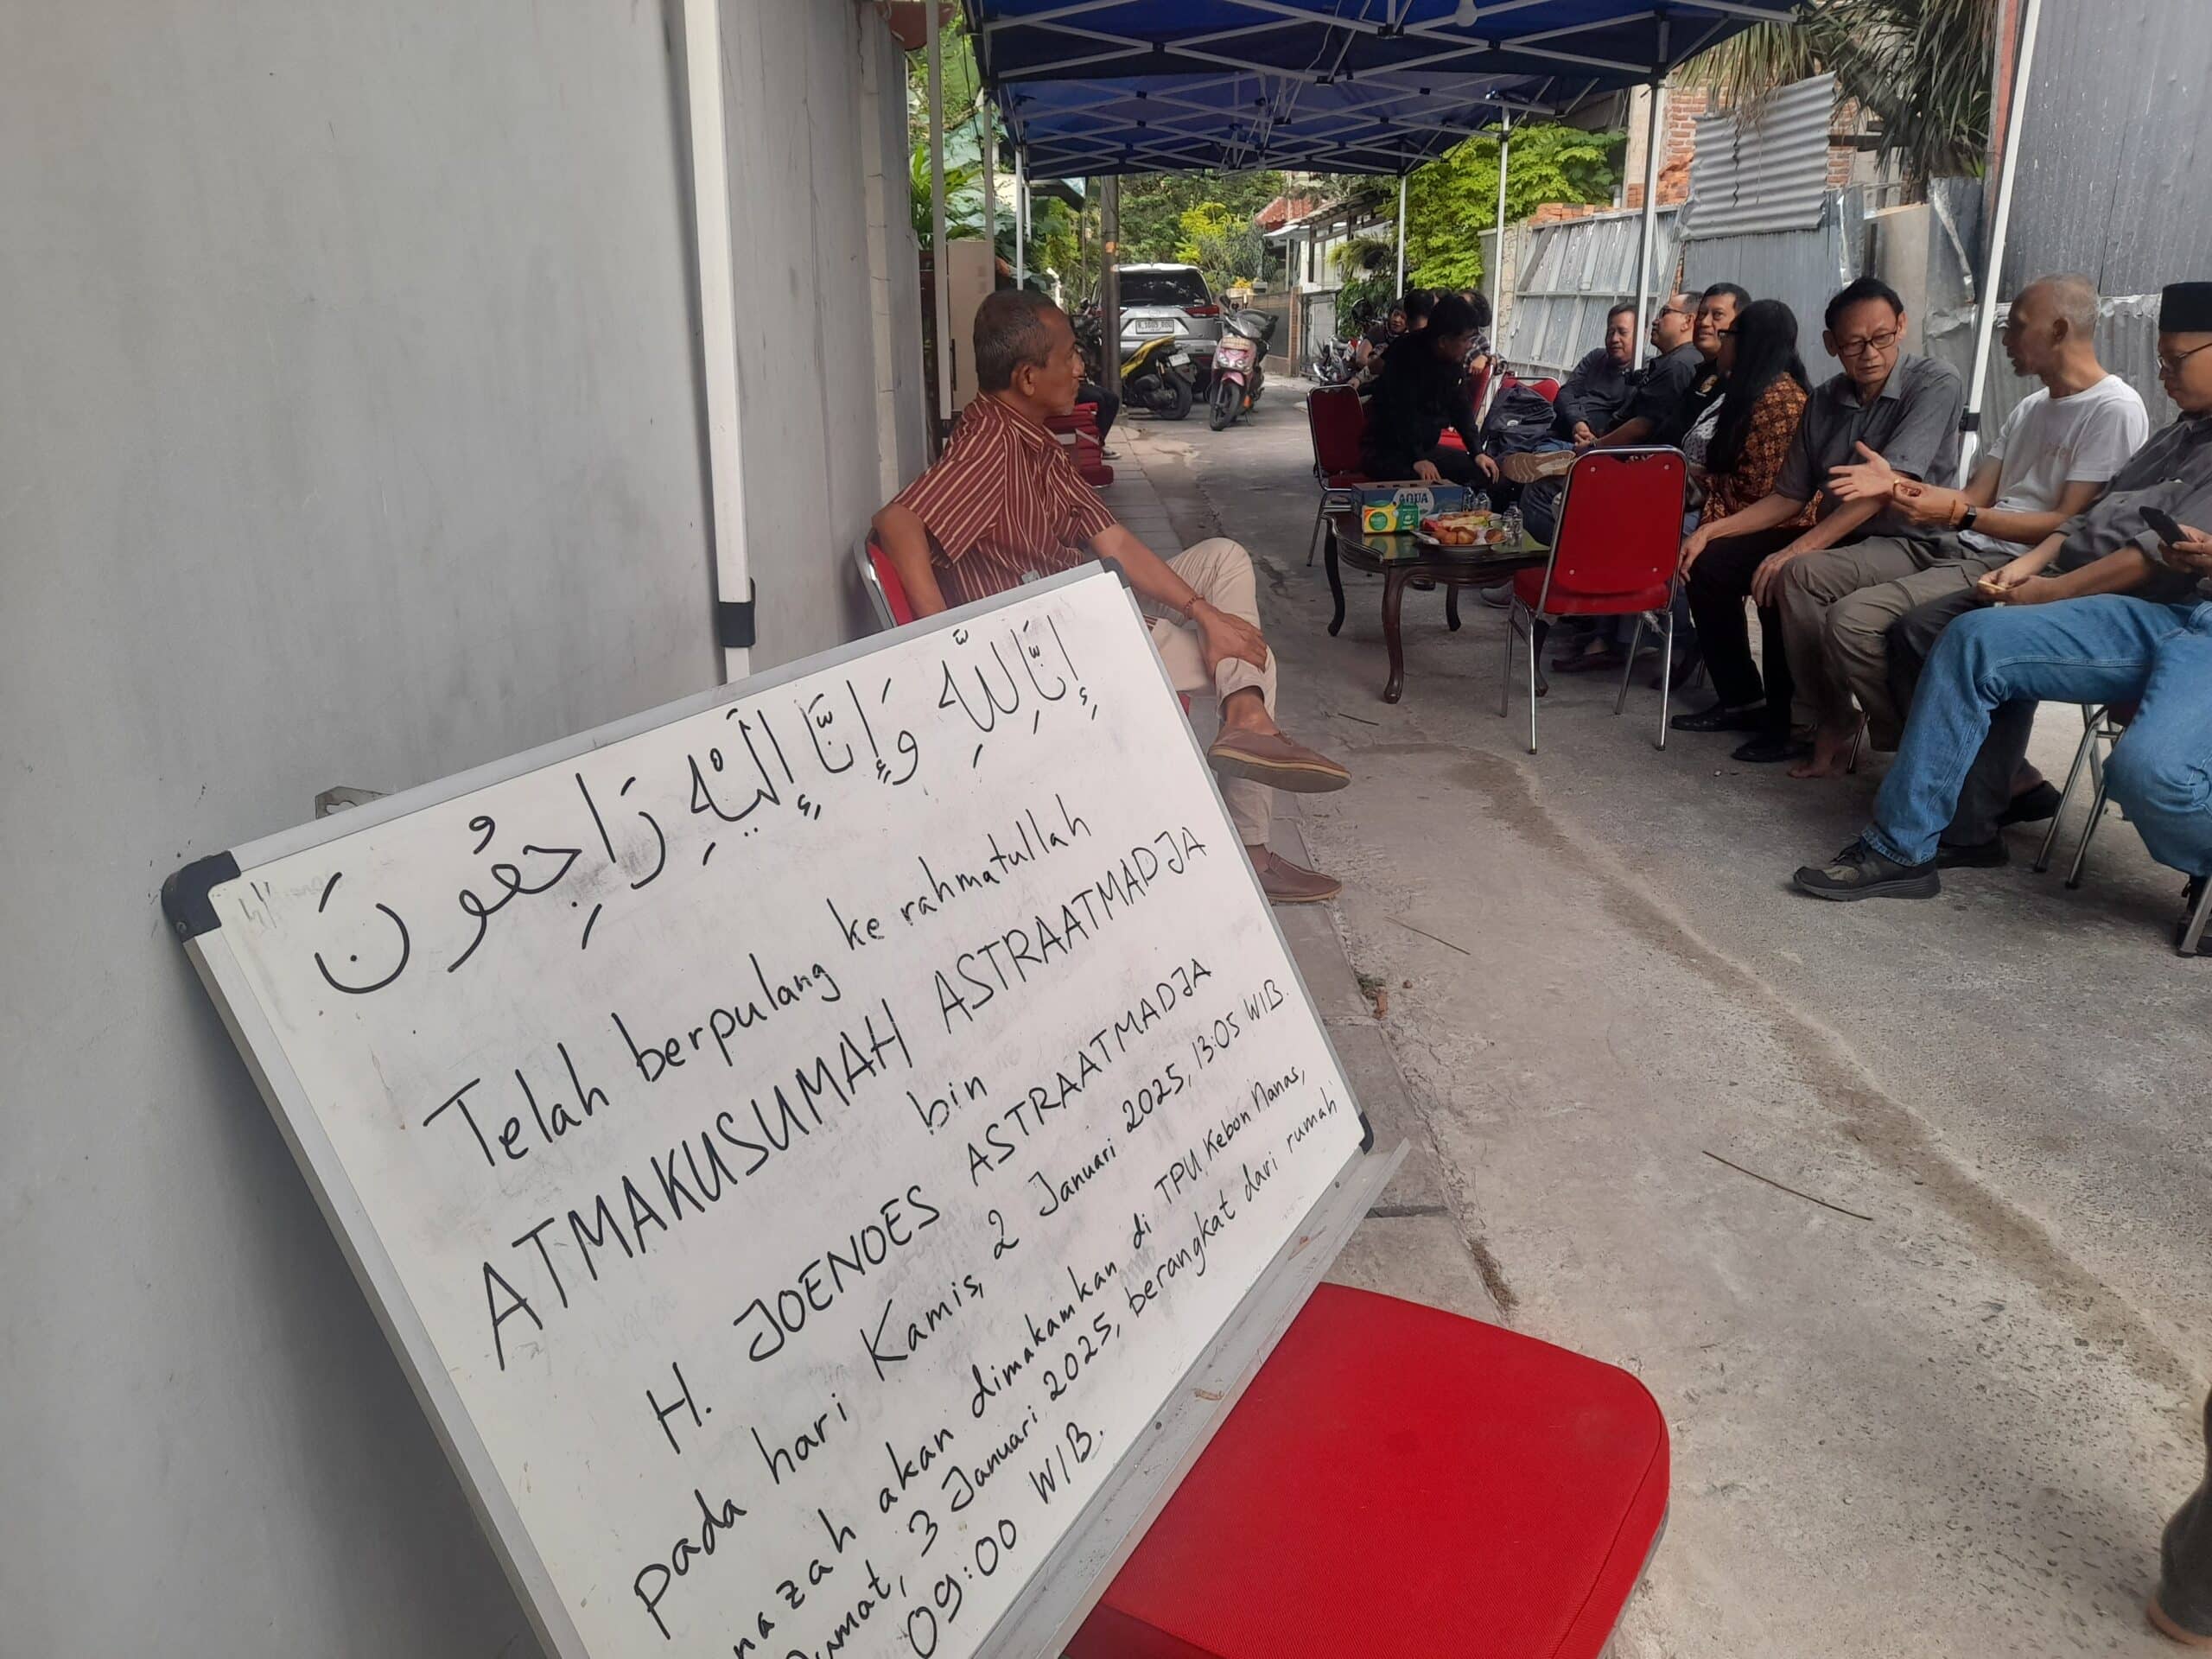 إِنَّا لِلّٰهِ وَإِنَّا إِلَيْهِ رَاجِعُونَ
Telah berpulang ke rahmatullah
ATMAKUSUMAH ASTRAATMADJA
bin
H. JOENOES ASTRAATMADJA
pada hari Kamis, 2 Januari 2025, 13:05 WIB.
nazah akan dimakamkan di TPU Kebon Nanas,
Jumat, 3 Januari 2025, berangkat dari rumah
09:00 WIB.
AQUA